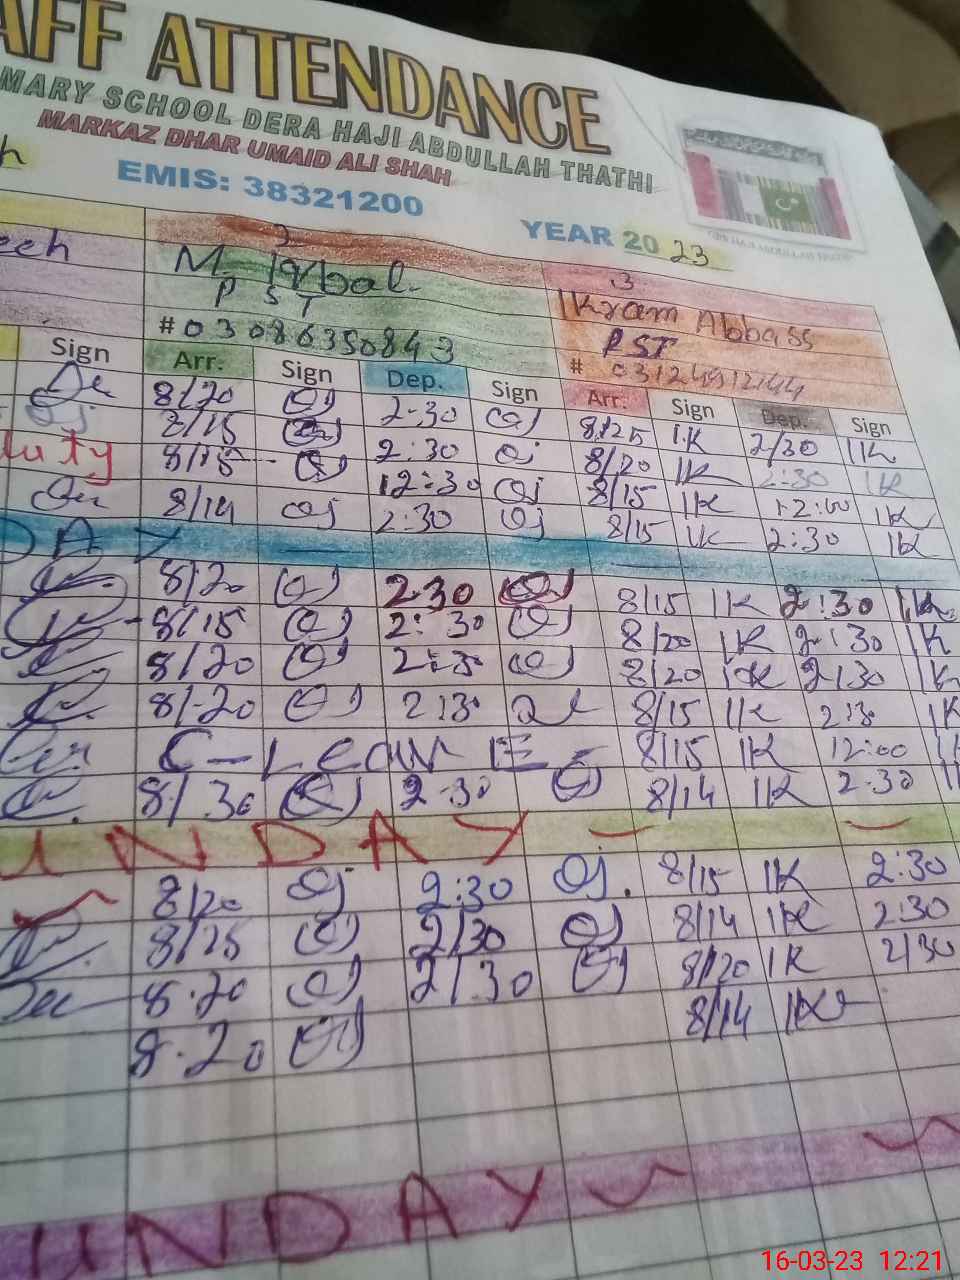 AFF ATTENDANCE
MARY SCHOOL DERA HAJI ABDULLAH THATHI
MARKAZ DHAR UMAID ALI SHAH
EMIS: 38321200
YEAR 20 23
2 3
M. Iqbal. Ikram Abbass
P S T PST
# 03086350843 # 03124912144
Sign Arr. Sign Dep. Sign Arr. Sign Dep. Sign
8/20 2:30 8:25 IK 2/30 IK
8/15 2:30 8/20 IK 2:30 IK
duty 8/15 12:30 8/15 IK 12:00 IK
8/14 2:30 8/15 IK 2:30 IK
D A Y
8/20 2 30 8/15 IK 2:30 IK
8/15 2:30 8/20 IK 2:30 IK
8/20 2:30 8/20 IK 2/30 IK
8/20 2:30 8/15 IK 2:30 IK
C-Leave 8/15 IK 12:00
8/30 2-30 8/14 IK 2-30
UNDAY
8/20 2:30 8/15 IK 2:30
8/15 2/30 8/14 IK 2:30
8.20 2/.30 8/20 IK 2/30
8.20 8/14 IK
UNDAY
16-03-23 12:21